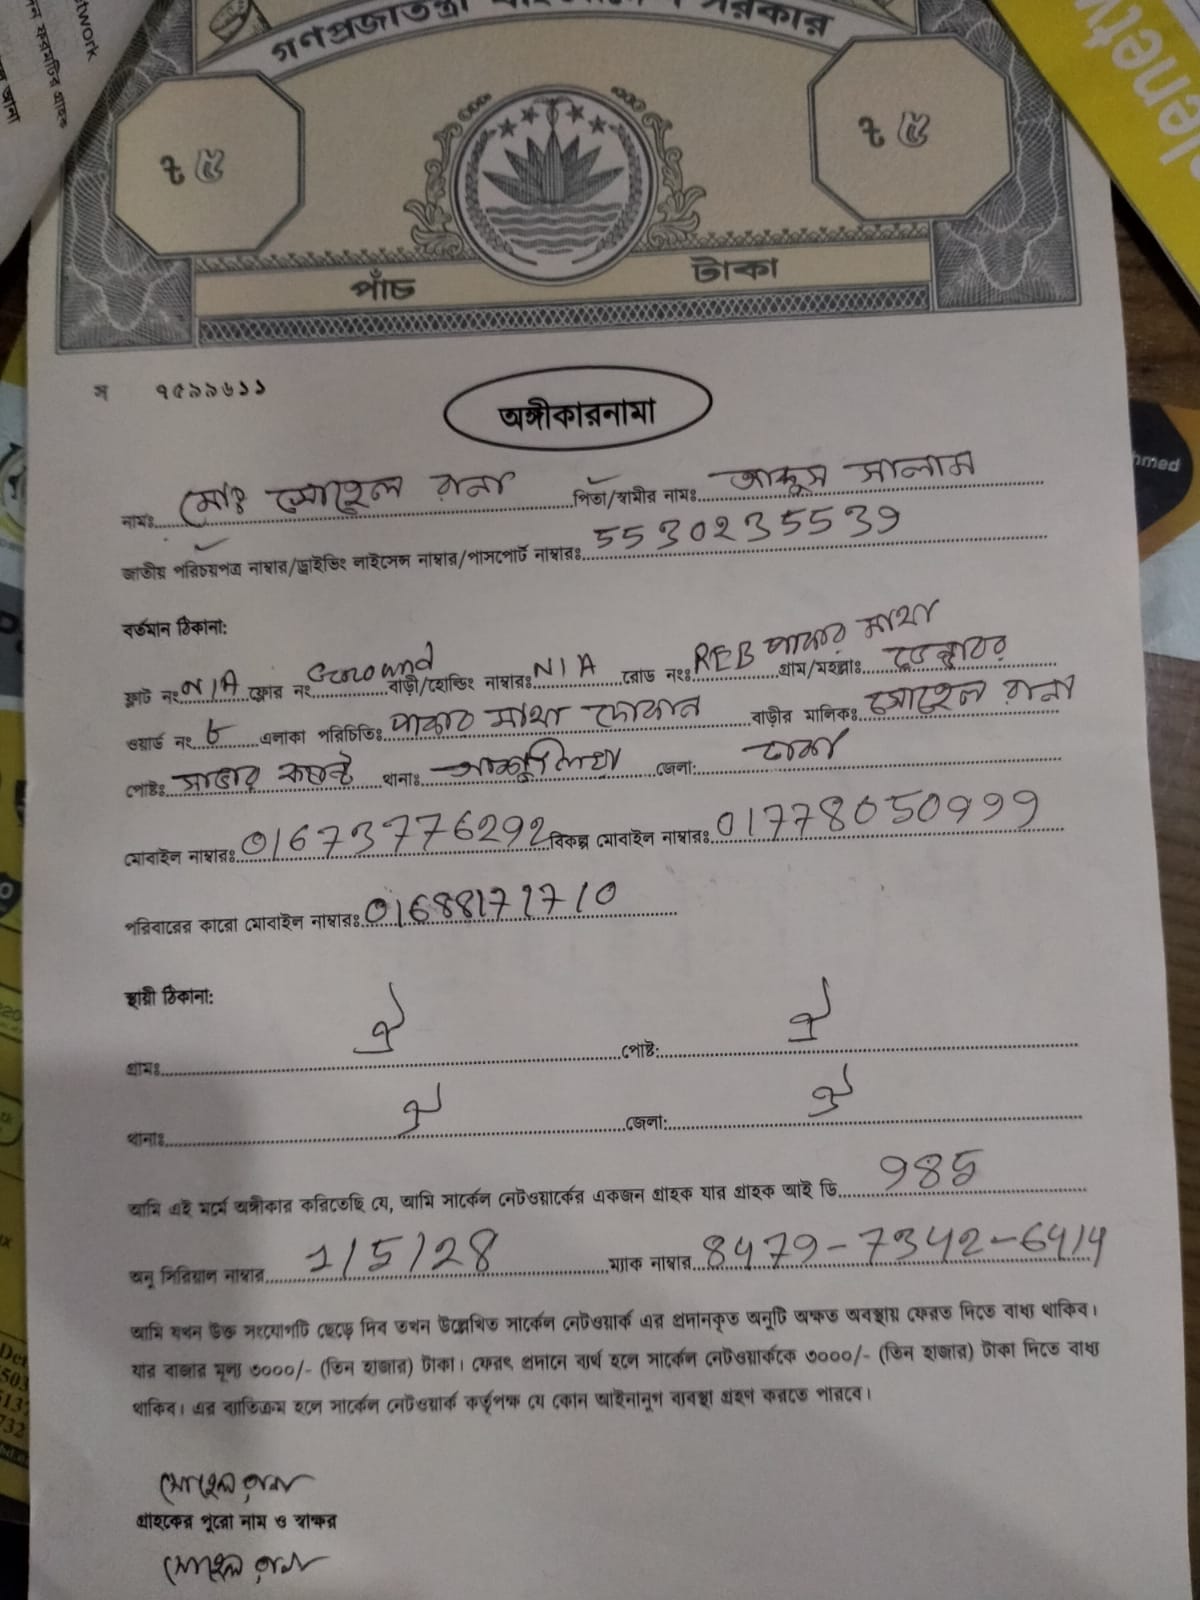 গণপ্রজাতন্ত্রী বাংলাদেশ সরকার
৳ ৫ ৳ ৫
পাঁচ টাকা
স ৭৫৯৯৬১১
অঙ্গীকারনামা
নামঃ মোঃ সোহেল রানা পিতা/স্বামীর নামঃ আব্দুস সালাম
জাতীয় পরিচয়পত্র নাম্বার/ড্রাইভিং লাইসেন্স নাম্বার/পাসপোর্ট নাম্বারঃ 5530235539
বর্তমান ঠিকানা:
ফ্লাট নং N/A ফ্লোর নং Ground বাড়ী/হোল্ডিং নাম্বারঃ N/A রোড নংঃ REB পাকার মাথা গ্রাম/মহল্লাঃ
ওয়ার্ড নং ৮ এলাকা পরিচিতিঃ পাকার মাথা দোকান বাড়ীর মালিকঃ সোহেল রানা
পোষ্টঃ সাভার ক্যান্ট থানাঃ আশুলিয়া জেলা: ঢাকা
মোবাইল নাম্বারঃ 01673776292 বিকল্প মোবাইল নাম্বারঃ 01778050999
পরিবারের কারো মোবাইল নাম্বারঃ
স্থায়ী ঠিকানা:
গ্রামঃ ঐ পোষ্ট: ঐ
থানাঃ ঐ জেলা: ঐ
আমি এই মর্মে অঙ্গীকার করিতেছি যে, আমি সার্কেল নেটওয়ার্কের একজন গ্রাহক যার গ্রাহক আই ডি 985
অনু সিরিয়াল নাম্বার 1/5/28 ম্যাক নাম্বার 8479-7342-6414
আমি যখন উক্ত সংযোগটি ছেড়ে দিব তখন উল্লেখিত সার্কেল নেটওয়ার্ক এর প্রদানকৃত অনুটি অক্ষত অবস্থায় ফেরত দিতে বাধ্য থাকিব।
যার বাজার মূল্য ৩০০০/- (তিন হাজার) টাকা। ফেরৎ প্রদানে ব্যর্থ হলে সার্কেল নেটওয়ার্ককে ৩০০০/- (তিন হাজার) টাকা দিতে বাধ্য
থাকিব। এর ব্যতিক্রম হলে সার্কেল নেটওয়ার্ক কর্তৃপক্ষ যে কোন আইনানুগ ব্যবস্থা গ্রহণ করতে পারবে।
সোহেল রানা
গ্রাহকের পুরো নাম ও স্বাক্ষর
সোহেল রানা